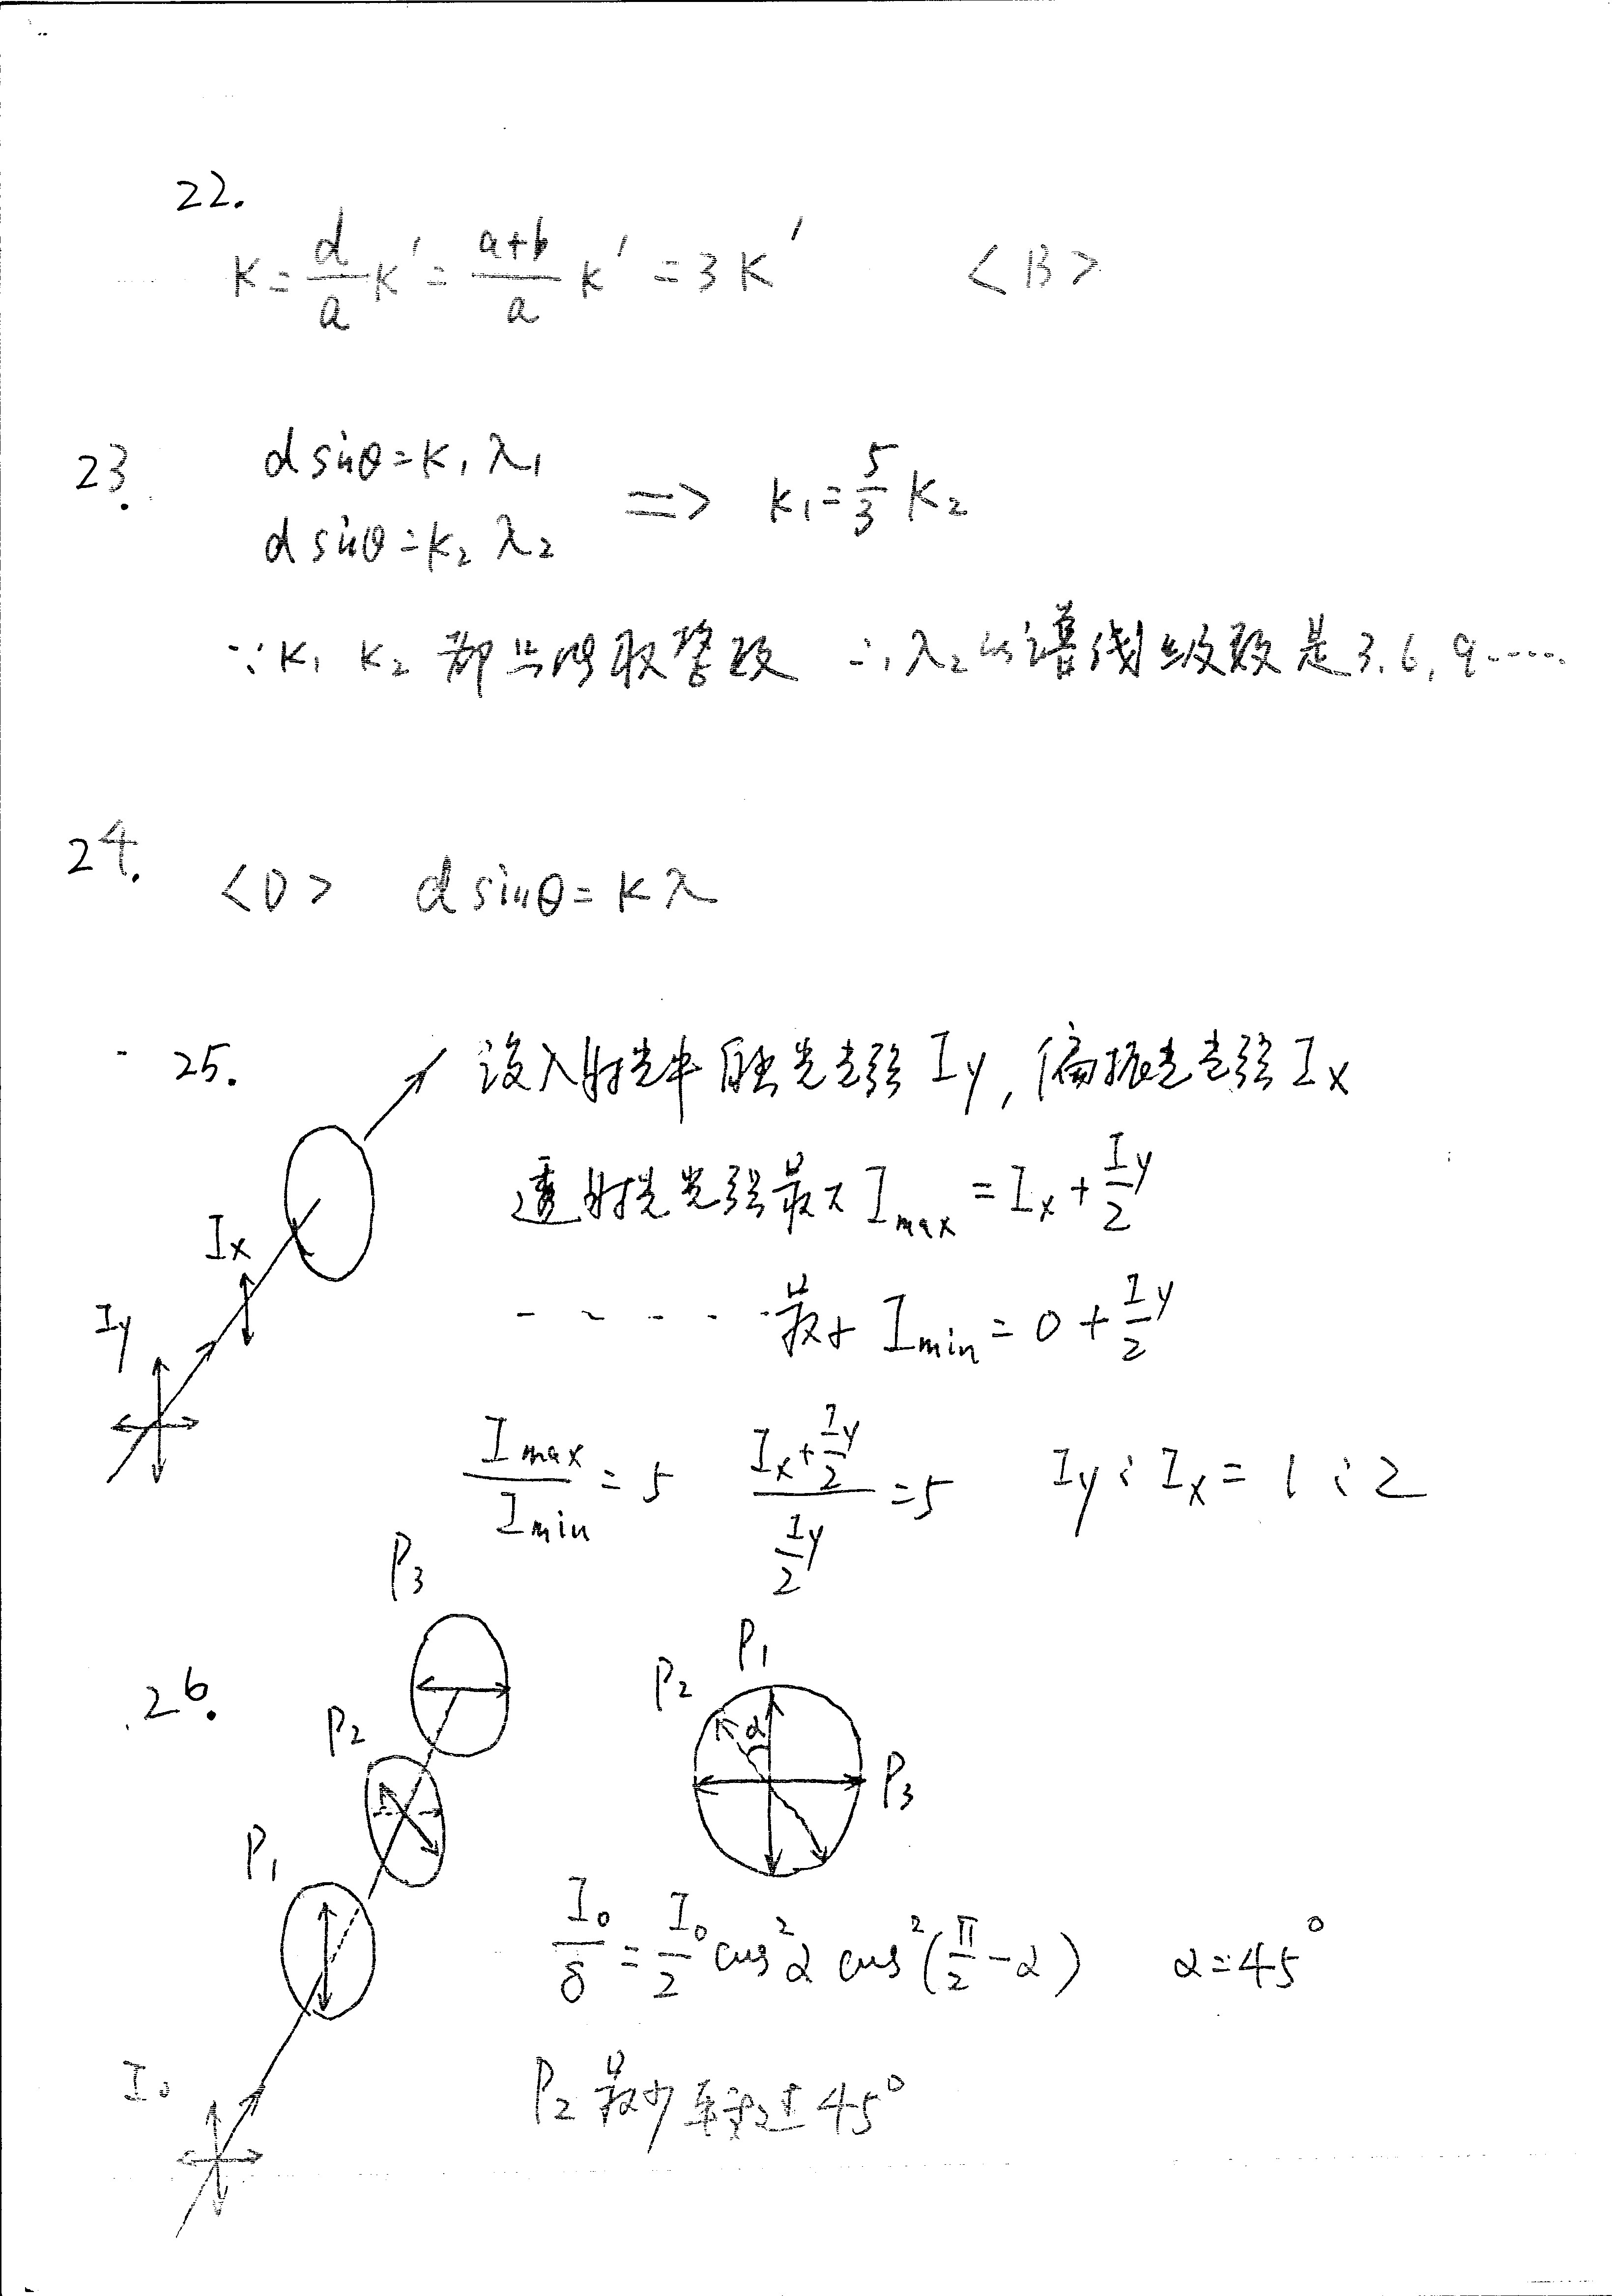 22.
K = d/a K' = (a+b)/a K' = 3K' <B>
23. d sinθ = K₁ λ₁
d sinθ = K₂ λ₂ => K₁ = 5/3 K₂
∵ K₁ K₂ 都只能取整数 ∴ λ₂的谱线级数是3, 6, 9……
24. <D> d sinθ = Kλ
25. 设入射光中自然光光强 Iy, 偏振光光强 Ix
透射光光强最大 Imax = Ix + Iy/2
- - - - - 最小 Imin = 0 + Iy/2
Ix
Iy
Imax/Imin = 5 (Ix + Iy/2)/(Iy/2) = 5 Iy : Ix = 1 : 2
26.
P₃
P₂
P₁
I₀
P₁
P₂
α
P₃
I₀/8 = I₀/2 cos²α cos²(π/2 - α) α = 45°
P₂ 最少要转过 45°